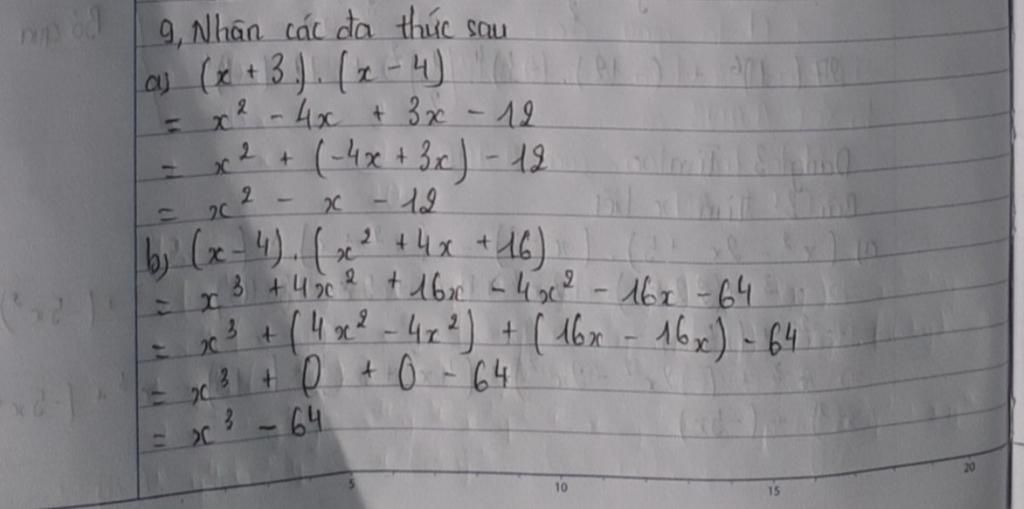 9, Nhân các đa thức sau
a) (x + 3). (x - 4)
= x² - 4x + 3x - 12
= x² + (-4x + 3x) - 12
= x² - x - 12
b) (x - 4). (x² + 4x + 16)
= x³ + 4x² + 16x - 4x² - 16x - 64
= x³ + (4x² - 4x²) + (16x - 16x) - 64
= x³ + 0 + 0 - 64
= x³ - 64
5 10 15 20